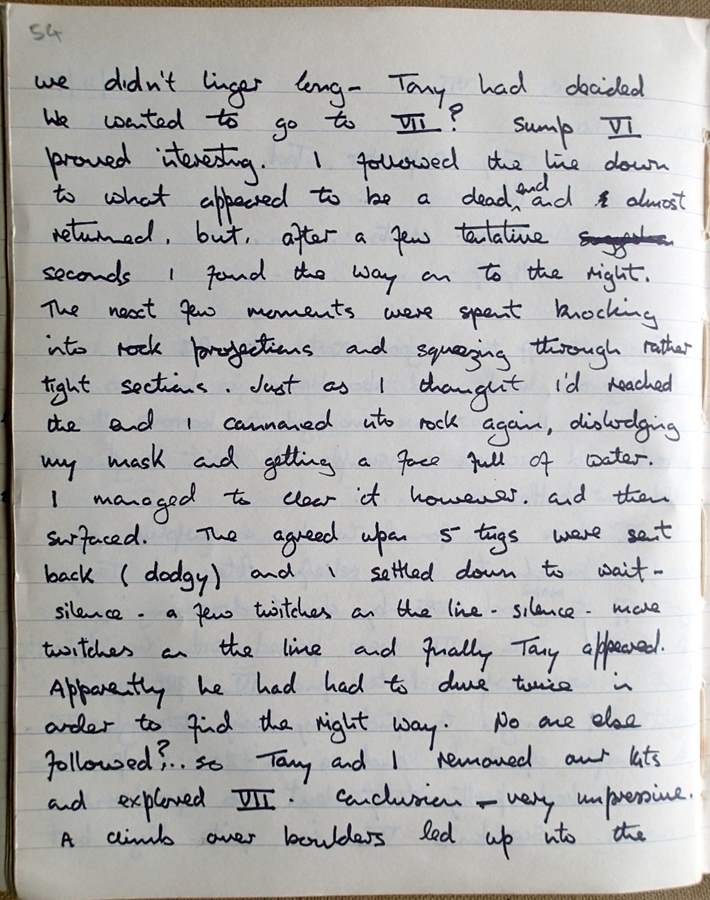 54
we didn't linger long - Tony had decided
we wanted to go to VII? Sump VI
proved interesting. I followed the line down
to what appeared to be a dead end and & almost
returned, but, after a few tentative
seconds I found the way on to the right.
The next few moments were spent knocking
into rock projections and squeezing through rather
tight sections. Just as I thought I'd reached
the end I cannaned into rock again, dislodging
my mask and getting a face full of water.
I managed to clear it however. and then
surfaced. The agreed upon 5 tugs were sent
back (dodgy) and I settled down to wait -
silence - a few twitches on the line - silence - more
twitches on the line and finally Tony appeared.
Apparently he had had to dive twice in
order to find the right way. No one else
followed?... so Tony and I removed our kits
and explored VII. Conclusion - very impressive.
A climb over boulders led up into the